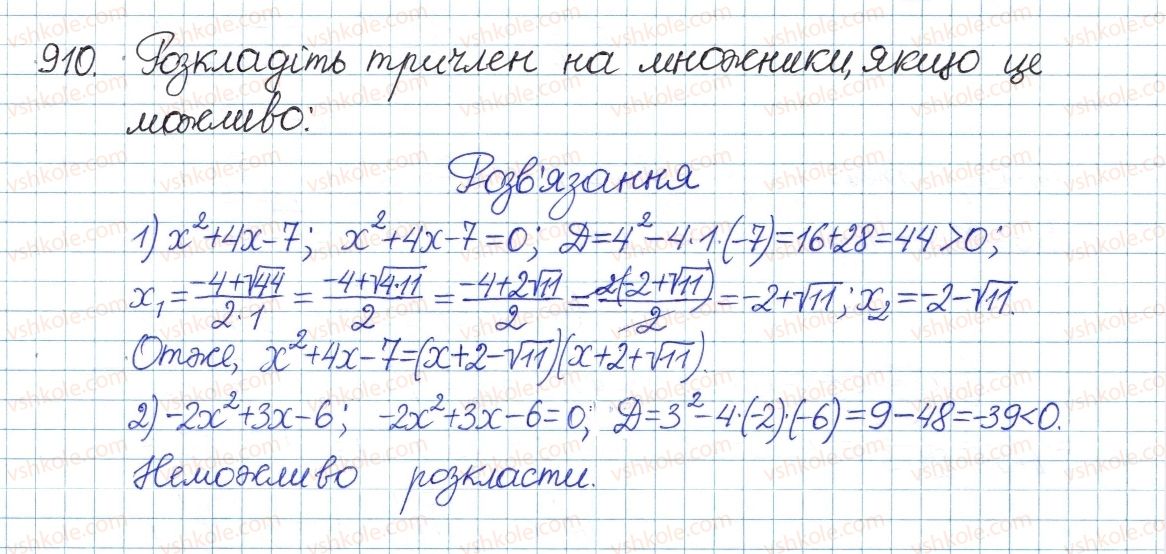 910. Розкладіть тричлен на множники, якщо це
можливо:
Розв'язання
1) x²+4x-7; x²+4x-7=0; Д=4²-4·1·(-7)=16+28=44>0;
x₁=(-4+√44)/(2·1)=(-4+√(4·11))/2=(-4+2√11)/2=2(-2+√11)/2=-2+√11; x₂=-2-√11.
Отже, x²+4x-7=(x+2-√11)(x+2+√11).
2) -2x²+3x-6; -2x²+3x-6=0; Д=3²-4·(-2)·(-6)=9-48=-39<0.
Неможливо розкласти.